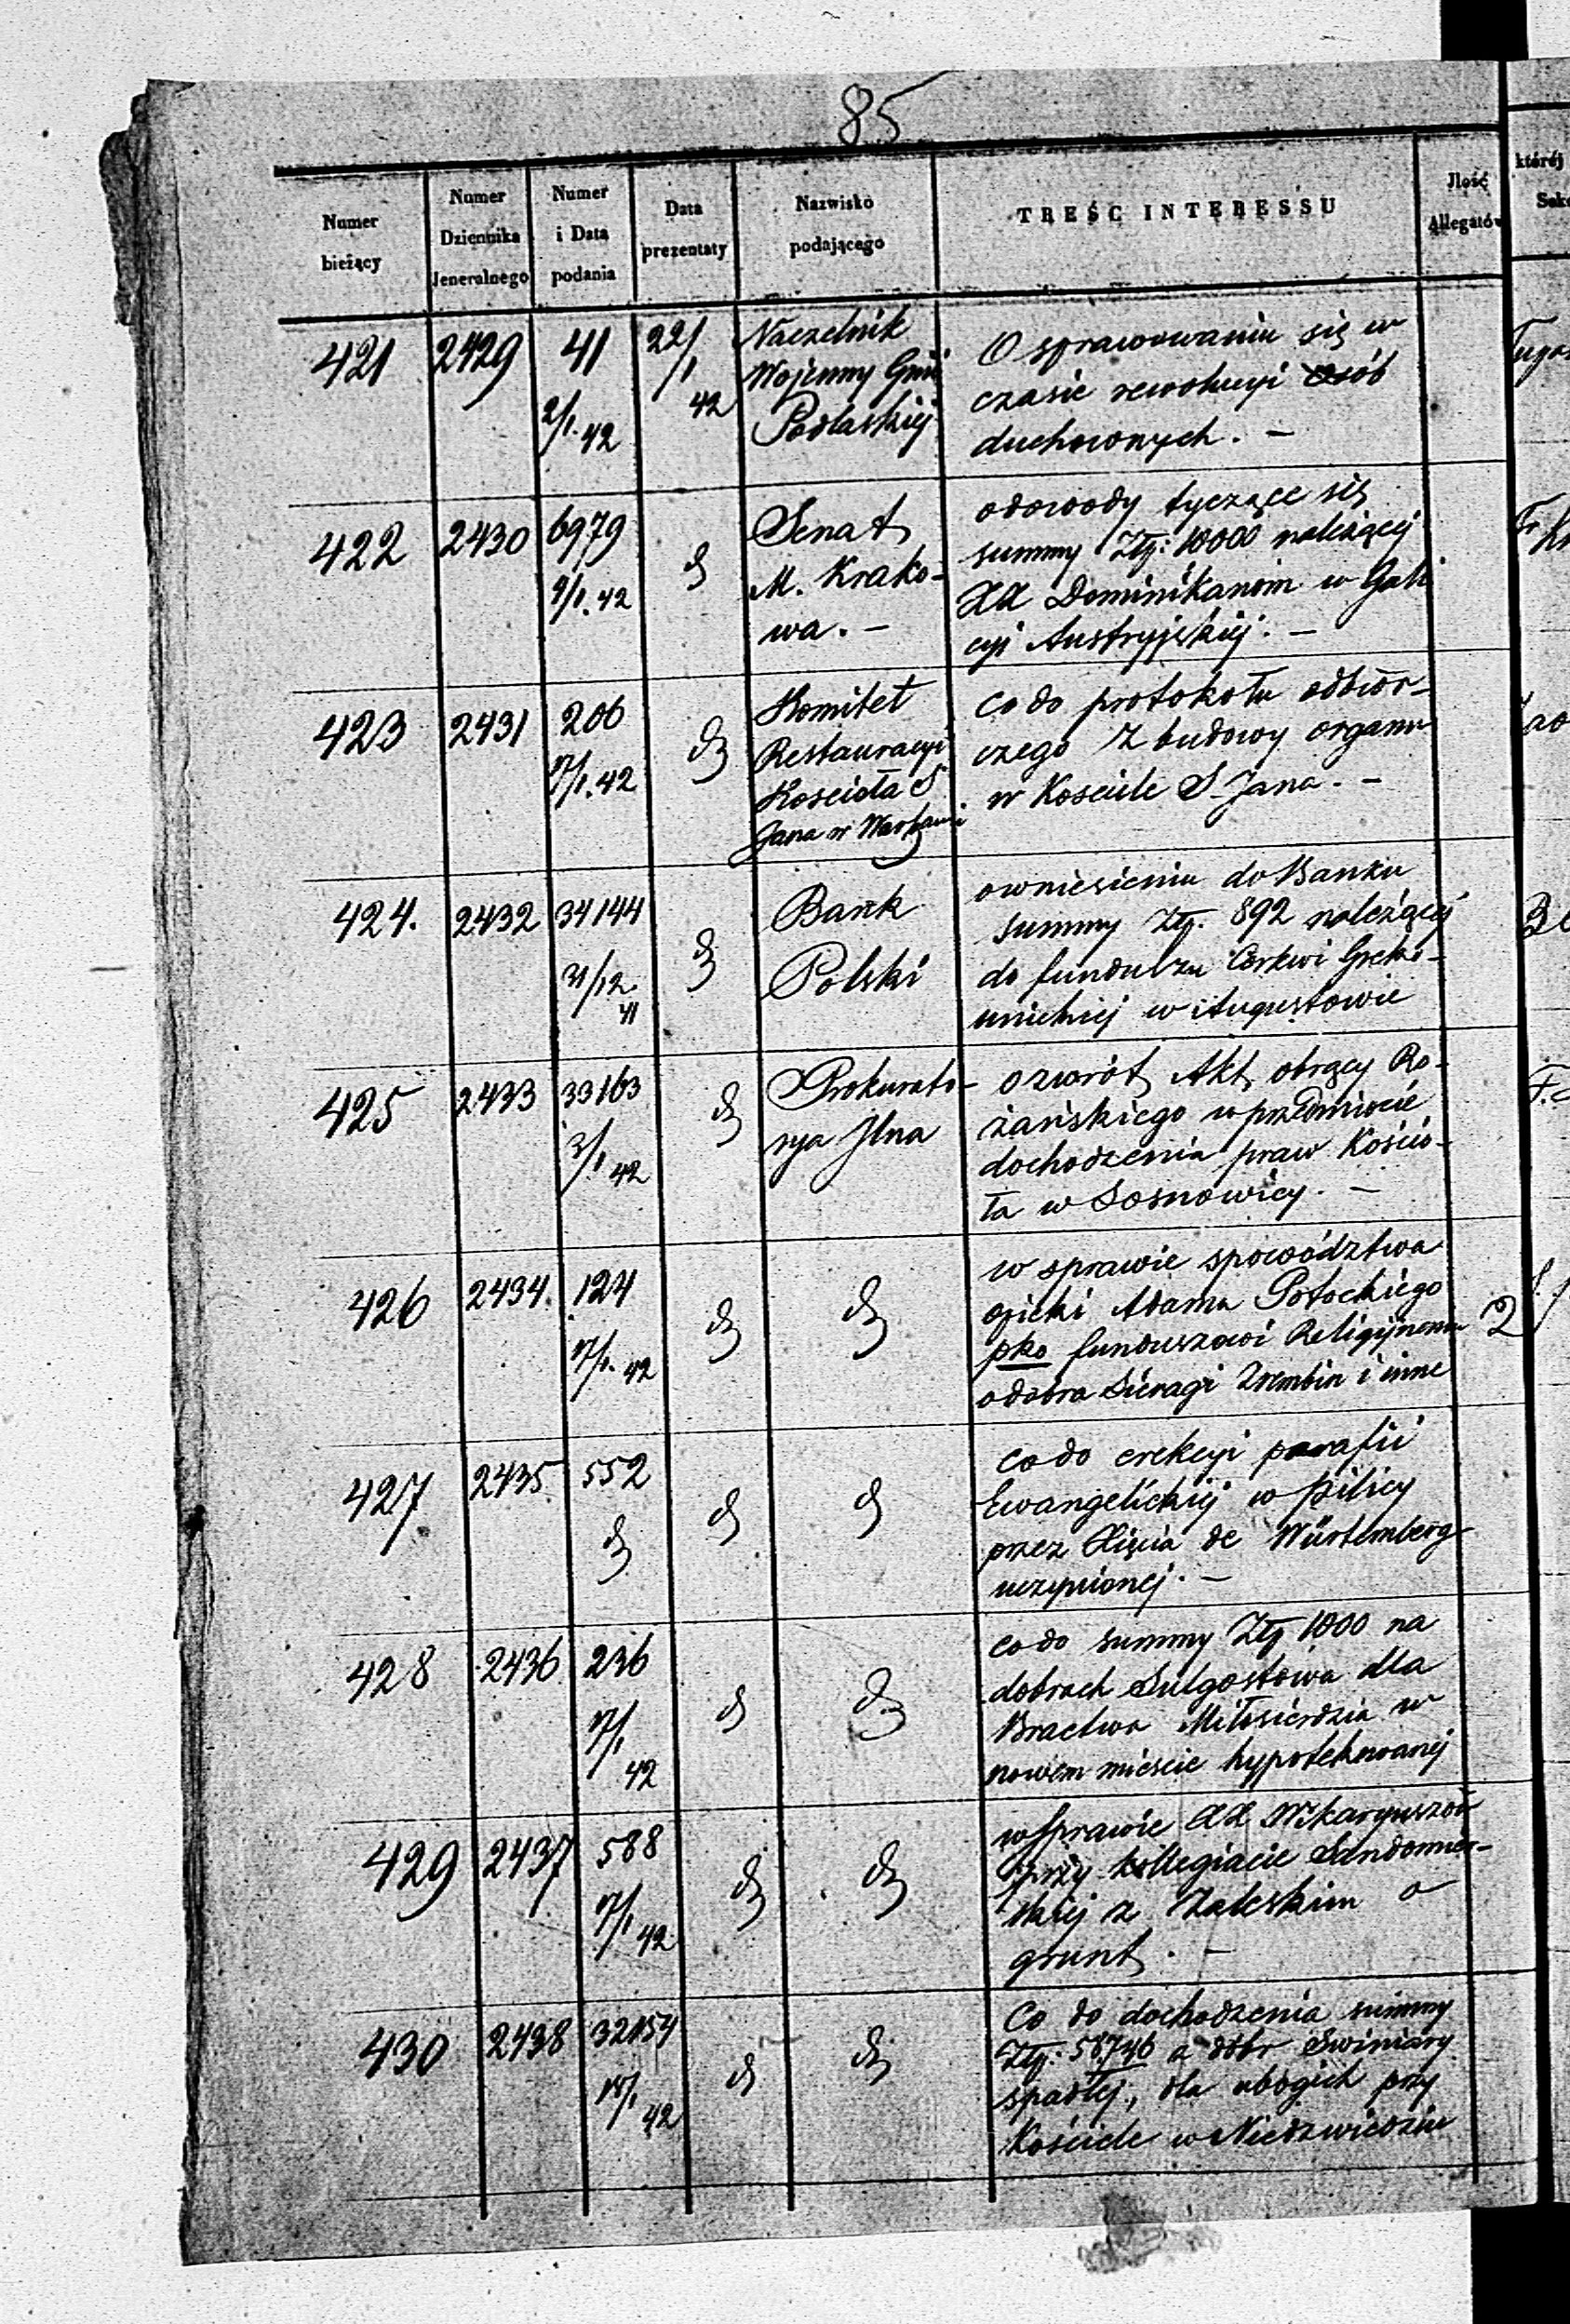 85
Numer bieżący
Numer Dziennika Jeneralnego
Numer i Data podania
Data prezentaty
Nazwisko podającego
TREŚC INTERESSU
Jlość Allegatów
której
421 2429 41 2/1. 42 22/1 42
Naczelnik
Wojenny Gnii
Podlaskiej
O sprawowaniu się w
czasie rewolucyi Osób
duchownych. —
422 2430 6979 9/1. 42 d
Senat
M. Krako-
wa. —
odowody tyczące się
summy Złp: 10000 należącej
XX Dominikanom w Gali
cyi Austryjskiej. —
423 2431 206 17/1. 42 d
Komitet
Restauracyi
Kościoła S
Jana w Warszawie
co do protokołu odbior-
czego z budowy organu
w Kosciele S. Jana. —
424. 2432 34144 31/12. 41 d
Bank
Polski
owniesieniu do Banku
summy Złp. 892 należącej
do funduszu Cerkwi Greko-
unickiej w Augustowie
425 2433 33163 3/1 42 d
Prokurato-
rya Jlna
ozwrót Akt obrący Ro-
żańskiego w przedmiocie
dochodzenia praw Kościo-
ła w Sosnowicy. —
426 2434. 124 17/1. 42 d d
w sprawie spowództwa
opieki Adama Potockiego
pko funduszowi Religijnemu
o dobra Sieragi Zrembin i inne
2
427 2435 552 d d d
co do erekcyi parafii
Ewangelickiej w Pilicy
przez Xięcia de Würtemberg
uczynionej. —
428 2436 236 17/1 42 d d
co do summy Złp 1000 na
dobrach Sulgostowa dla
Bractwa Miłosierdzia w
nowem mieście hypotekowanej
429 2437 588 17/1 42 d d
w sprawie XX Wikaryuszów
przy kollegiacie Sandomier-
skiej z Zaleskim o
grunt. —
430 2438 32154 18/1 42 d d
Co do dochodzenia summy
Złp: 58746 z dóbr Swiniary
spadłej, dla ubogich przy
Kościele w Niedzwiedziu